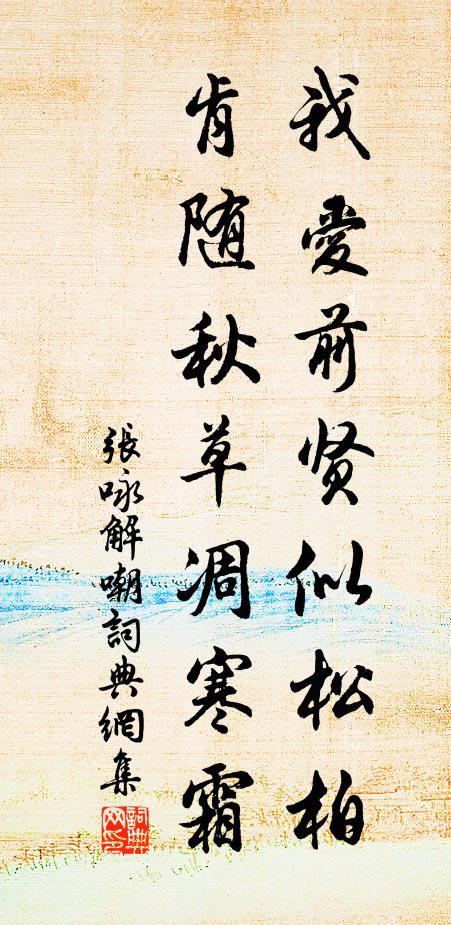 我愛前贤似松柏
肯随秋草凋寒霜
張咏解嘲詞典網集